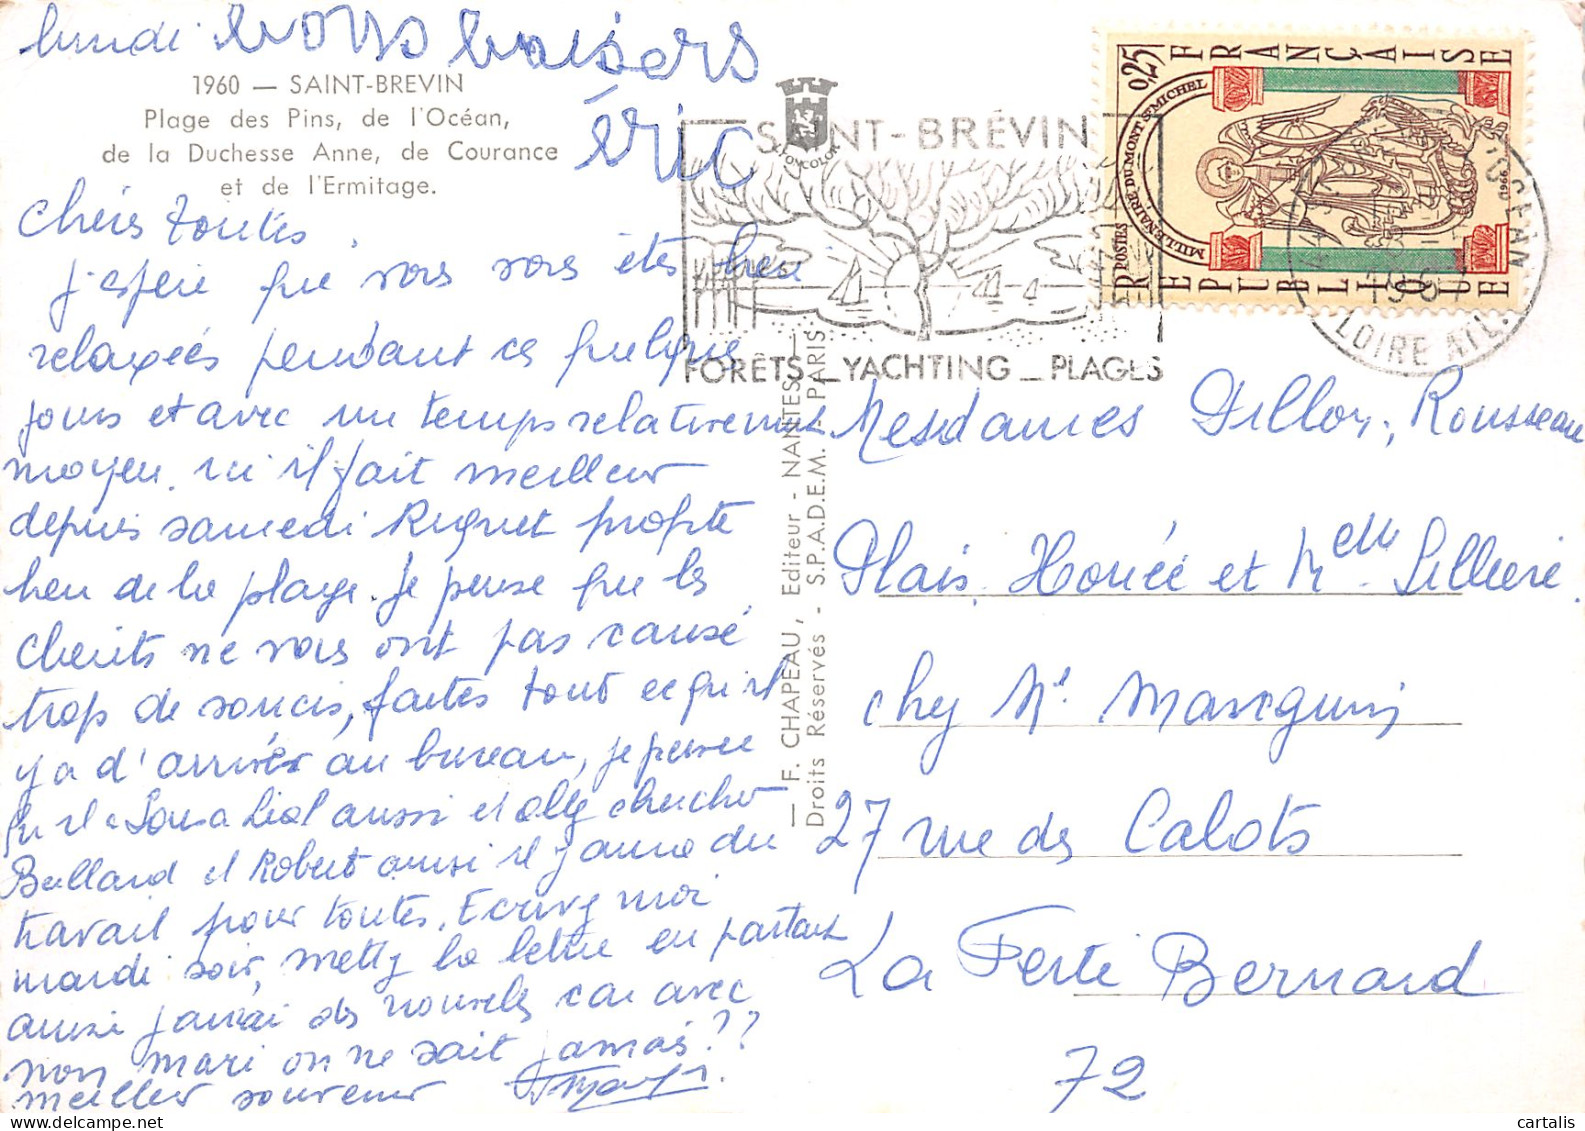 lundi
bons baisers
éric
1960 — SAINT-BREVIN
Plage des Pins, de l'Océan,
de la Duchesse Anne, de Courance
et de l'Ermitage.
Chères toutes,
J'espère que vous vous êtes bien
relaxées pendant ces quelques
jours et avec un temps relativement
moyen. ici il fait meilleur
depuis samedi Riquet profite
bien de la plage. Je pense que les
clients ne vous ont pas causé
trop de soucis, faites tout ce qu'il
y a d'arriver au bureau, je pense
qu'il a aussi et allez chercher
Bullard et Robert aussi il y aura du
travail pour toutes. Ecrivez moi
mardi soir, mettez la lettre en partant
aussi j'aurai des nouvelles car avec
mon mari on ne sait jamais??
meilleur souvenir
— F. CHAPEAU, Editeur - NANTES —
Droits Réservés - S.P.A.D.E.M. - PARIS
SAINT-BRÉVIN
FORÊTS _ YACHTING _ PLAGES
RÉPUBLIQUE FRANÇAISE
0,25
POSTES
MILLÉNAIRE DU MONT ST MICHEL
1966
OCÉAN
LOIRE ATL.
Mesdames Dillon, Rousseau
Plais, Houée et Melle Lilliere
chez Me Manguin
27 rue des Calots
La Ferté Bernard
72
cartalis